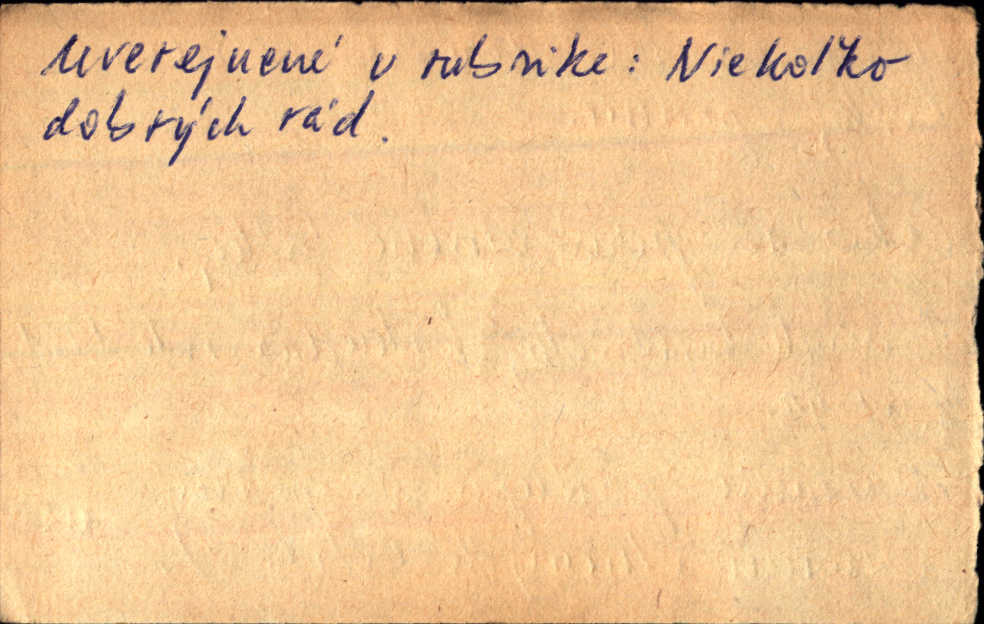 Uverejnené v rubrike: Niekoľko
dobrých rád.